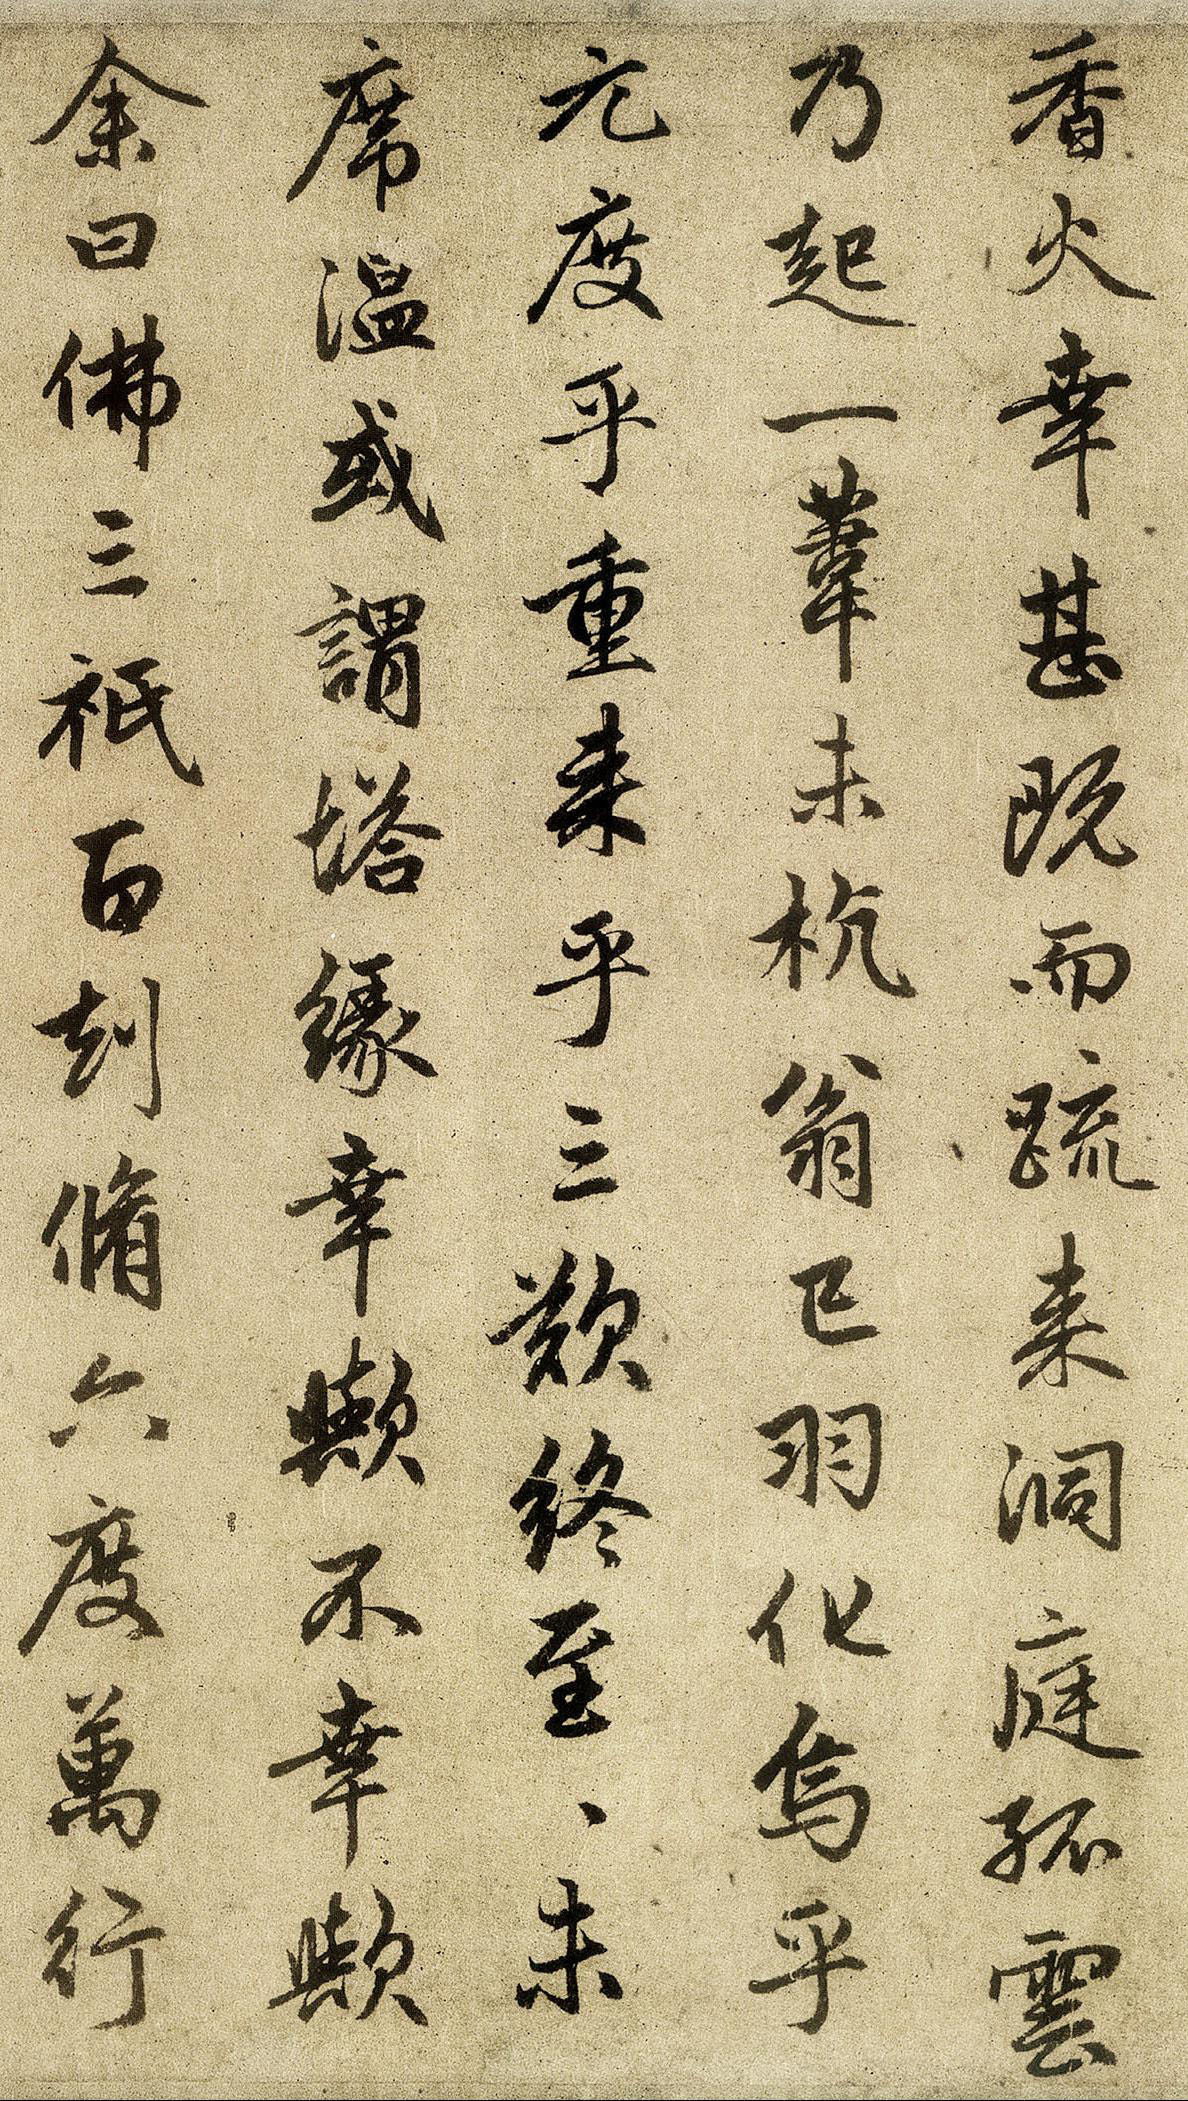 香火幸甚既而疏来洞庭孤雲
乃起一葦未杭翁已羽化烏乎
元度乎重来乎三歎終至、未
席温或謂塔緣幸歟不幸歟
余曰佛三祇百刧脩六度萬行